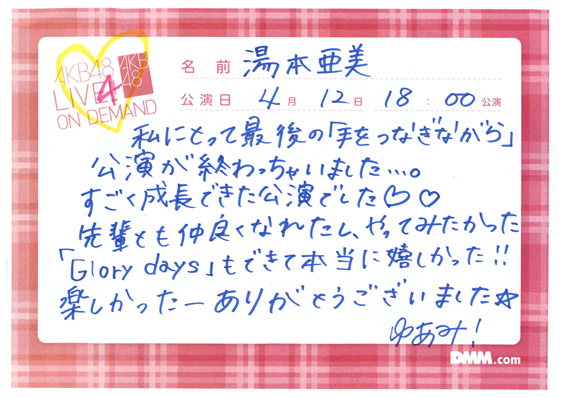 AKB48
LIVE
ON DEMAND
AKB
48
4
名前 湯本亜美
公演日 4月12日 18:00公演
私にとって最後の「手をつなぎながら」
公演が終わっちゃいました…。
すごく成長できた公演でした♡♡
先輩とも仲良くなれたし、やってみたかった
「Glory days」もできて本当に嬉しかった!!
楽しかったーありがとうございました☆
ゆあみ!
DMM.com